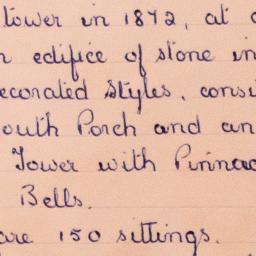 tower in 1872, at
edifice of stone in
ecorated Styles, consi
outh Porch and an
Tower with Pinnac
Bells.
are 150 sittings.